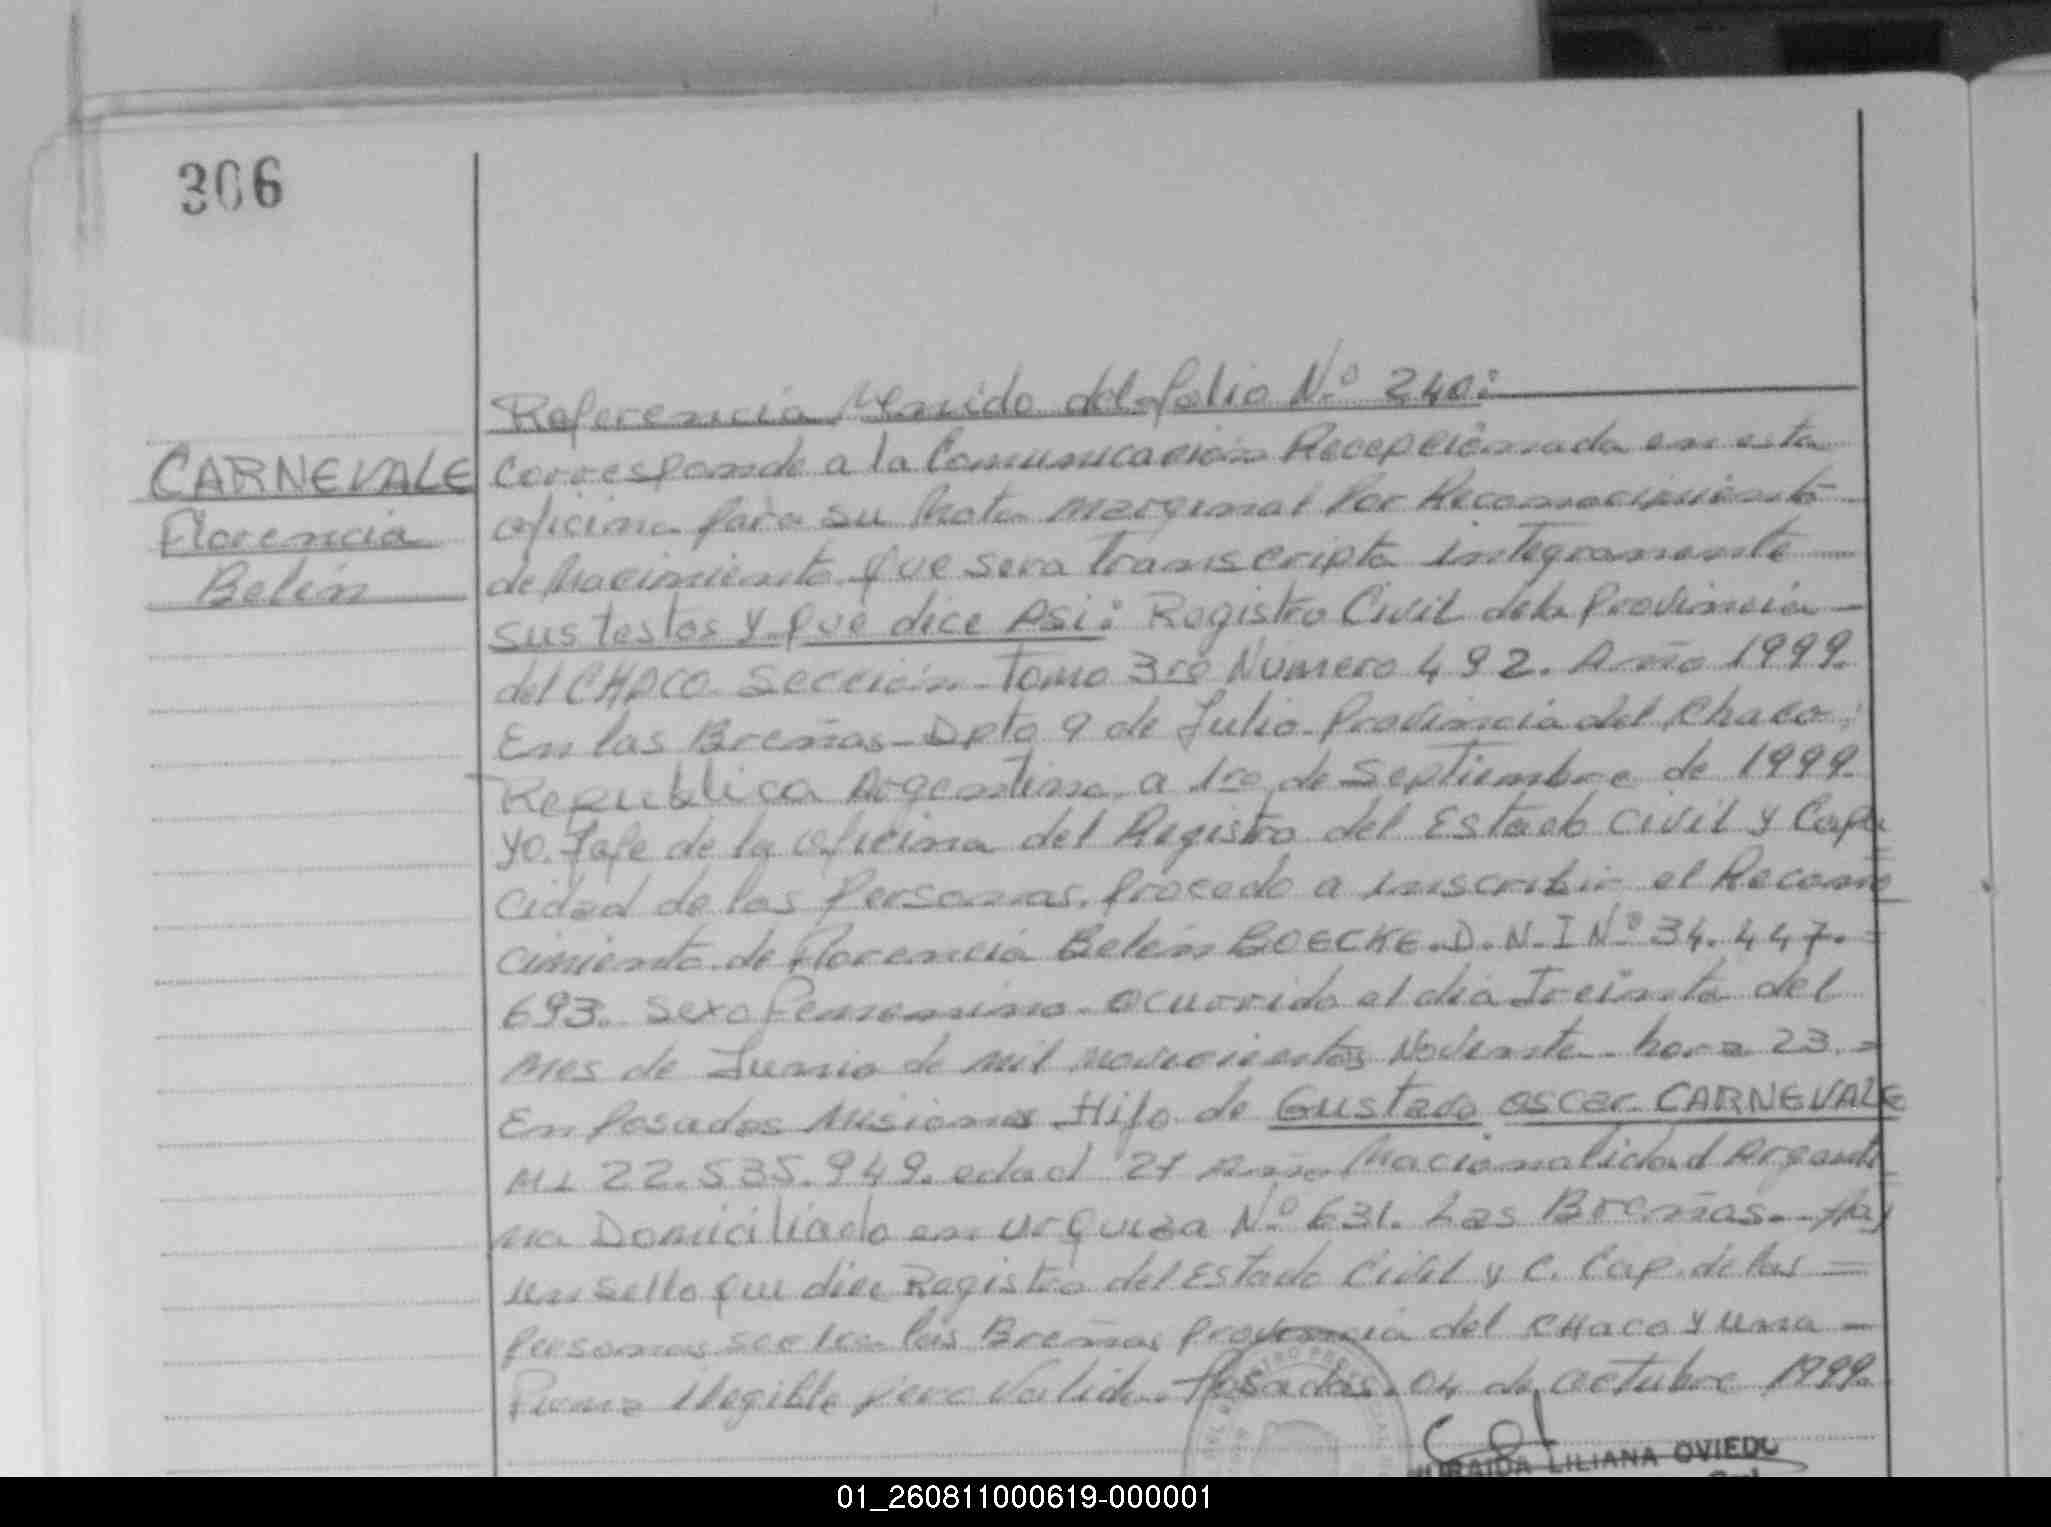 306
CARNEVALE
Florencia
Belén
Referencia Venido del folio Nº 240:
Corresponde a la Comunicación Recepcionada en esta
oficina para su Nota marginal Por Reconocimiento
de Nacimiento que sera transcripta integramente
sus testos y que dice Asi: Registro Civil dela Provincia
del CHACO. Sección Tomo 3ro Número 492. Año 1999.
En las Breñas - Dpto 9 de Julio. Provincia del Chaco.
Republica Argentina, a 1ro de Septiembre de 1999.
Yo. Jefe de la oficina del Registro del Estado Civil y Capa
cidad de las Personas. procedo a inscribir el Recono
cimiento de Florencia Belén BOECKE. D.N.I Nº 34.447.=
693. Sexo femenino. ocurrido el día Treinta del
mes de Junio de mil novecientos Noventa hora 23.=
En Posadas Misiones Hijo de Gustavo oscar CARNEVALE
M.I 22.535.949. edad 27 Años Nacionalidad Argenti
na Domiciliado en Urquiza Nº 631. Las Breñas. Hay
un sello que dice Registro del Estado Civil y C. Cap. de las =
personas las Breñas provincia del CHaco y una -
Firma Ilegible pero Valida. Posadas, 04 de octubre 1999.
LILIANA OVIEDO
01_260811000619-000001